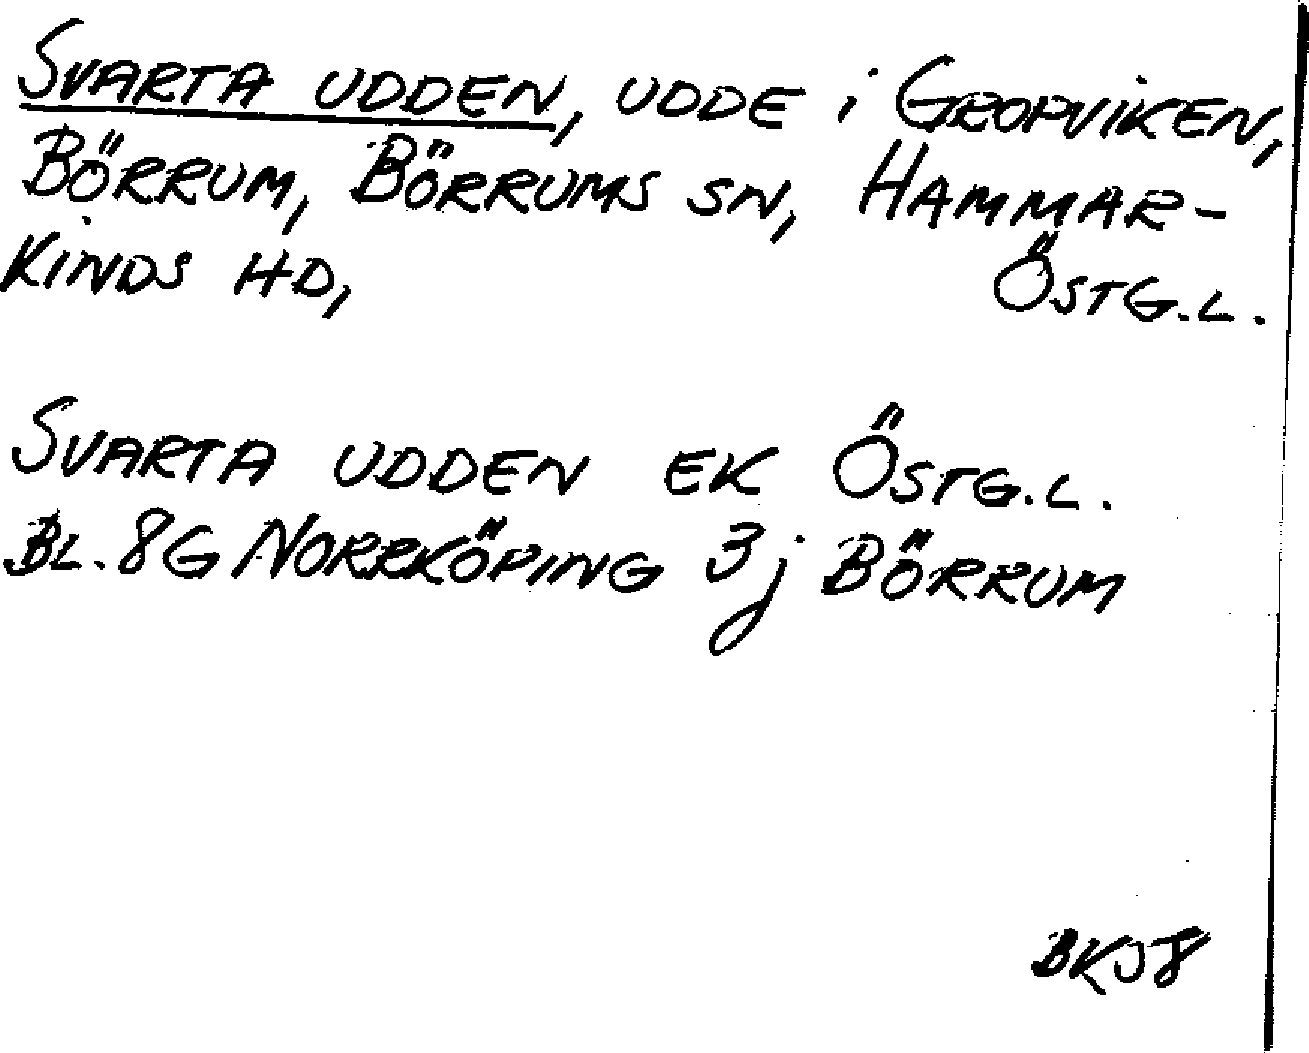 SVARTA UDDEN, UDDE i GROPVIKEN,
BÖRRUM, BÖRRUMS SN, HAMMAR-
KINDS HD, ÖSTG.L.
SVARTA UDDEN EK ÖSTG.L.
BL. 8G NORRKÖPING 3j BÖRRUM